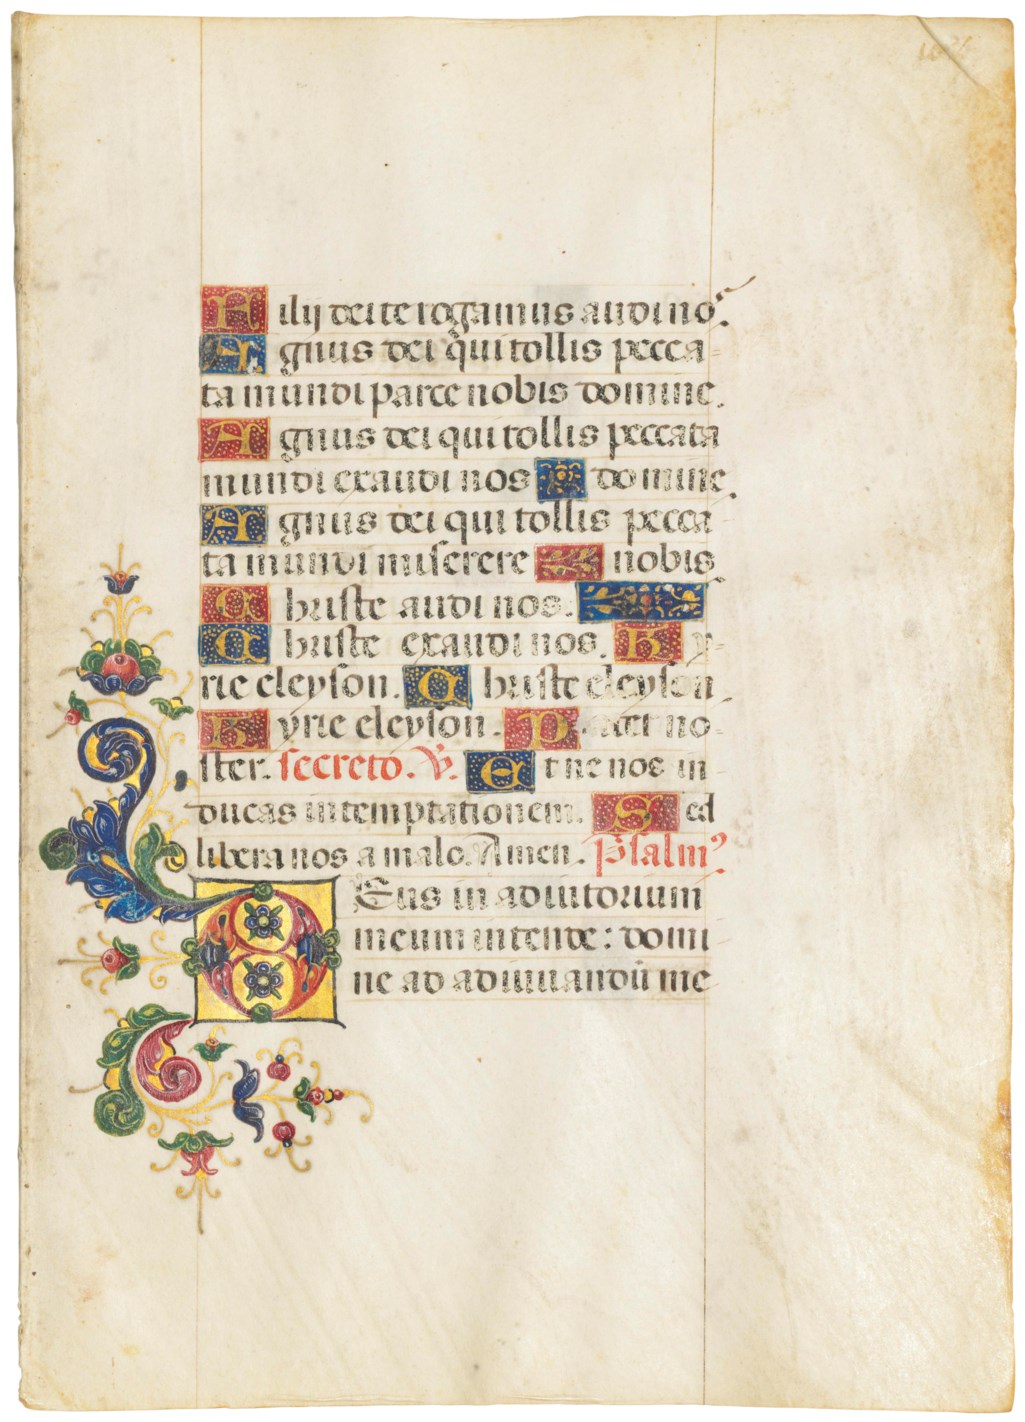 Filij dei te rogamus audi nos.
Agnus dei qui tollis pecca-
ta mundi parce nobis domine.
Agnus dei qui tollis peccata
mundi exaudi nos domine.
Agnus dei qui tollis pecca
ta mundi miserere nobis
Christe audi nos.
Christe exaudi nos. Ky-
rie eleyson. Christe eleyson.
Kyrie eleyson. Pater no-
ster. secreto. V. Et ne nos in
ducas in temptationem. Sed
libera nos a malo. Amen. Psalmꝰ
DEus in adiutorium
meum intende: domi
ne ad adiuuandū me